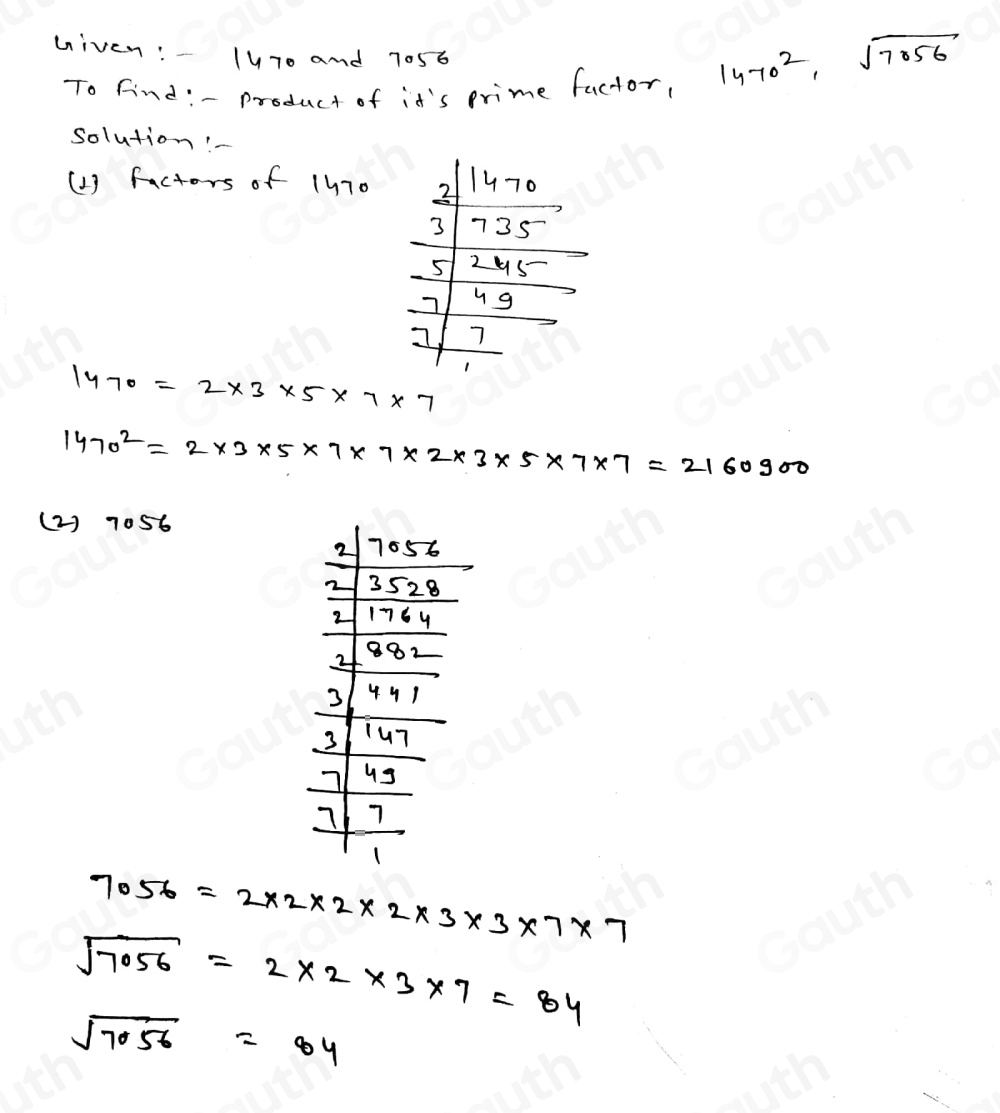 Given :- 1470 and 7056
To find :- Product of it's prime factor, 1470², √7056
Solution :-
(1) factors of 1470
2 | 1470
3 | 735
5 | 245
7 | 49
7 | 7
1
1470 = 2 × 3 × 5 × 7 × 7
1470² = 2 × 3 × 5 × 7 × 7 × 2 × 3 × 5 × 7 × 7 = 2160900
(2) 7056
2 | 7056
2 | 3528
2 | 1764
2 | 882
3 | 441
3 | 147
7 | 49
7 | 7
1
7056 = 2 × 2 × 2 × 2 × 3 × 3 × 7 × 7
√7056 = 2 × 2 × 3 × 7 = 84
√7056 = 84